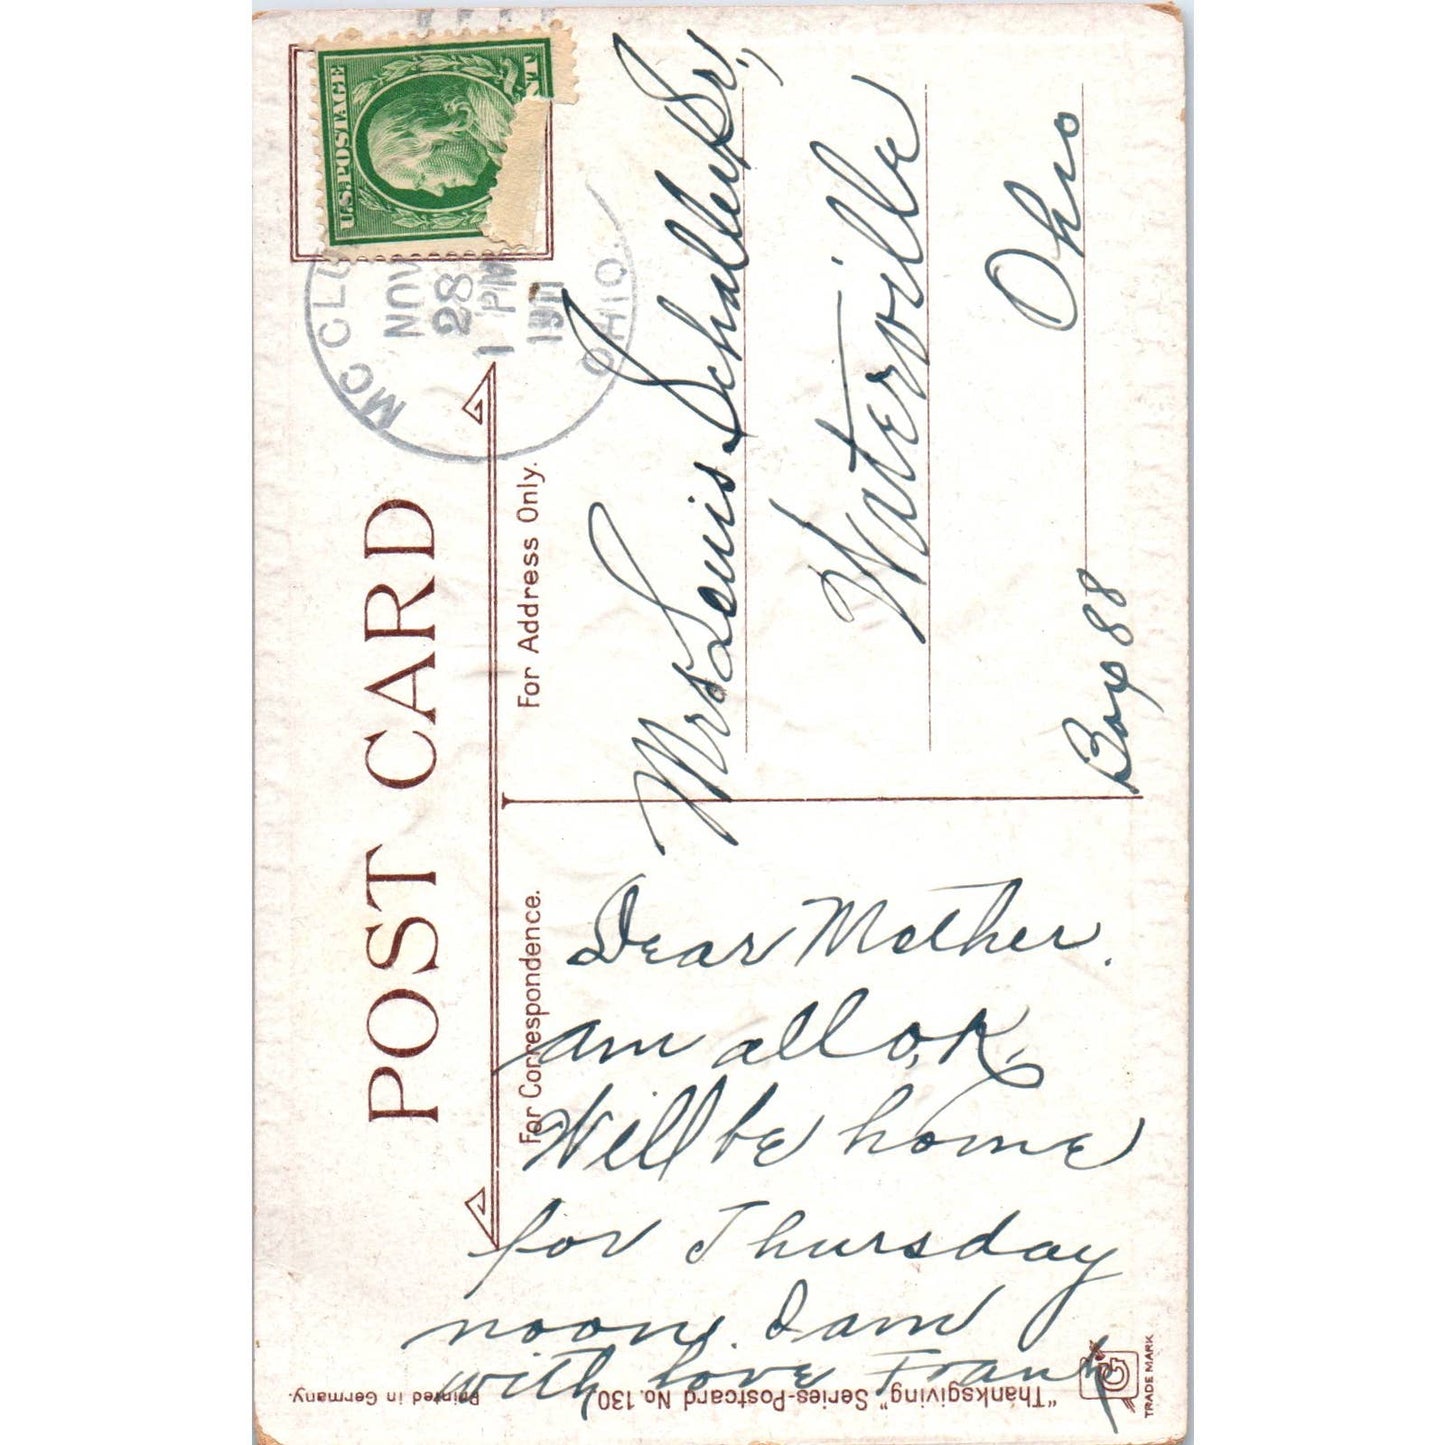 POST CARD
U.S. POSTAGE
NOV
28
1 PM
1911
OHIO.
For Address Only.
Mrs Louis Schaller Sr.,
Waterville
Ohio
Box 88
For Correspondence.
Dear Mother.
am all O.K.
Will be home
for Thursday
noon. I am
with love Frank
"Thanksgiving" Series-Postcard No. 130
Printed in Germany.
TRADE MARK